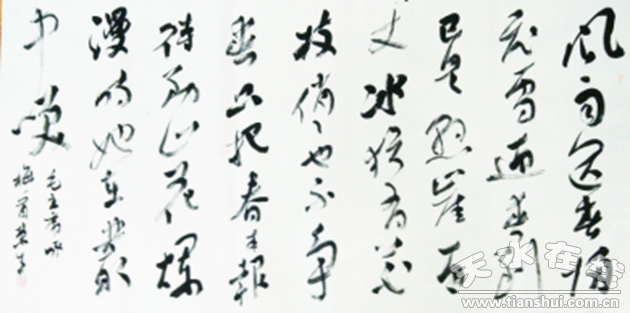 风雨送春归
飞雪迎春到
已是悬崖百
丈冰犹有花
枝俏〻也不争
春只把春来報
待到山花爛
漫时她在叢
中笑
毛主席咏
梅
天水在线
www.tianshui.com.cn